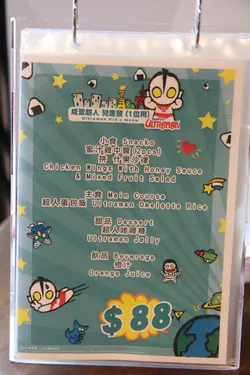 鹹蛋超人 兒童餐(1位用)
Ultraman Kid's Menu
ULTRAMAN
小食 Snacks
蜜汁雞中翼 (2pcs)
拼 什果沙律
Chicken Wings With Honey Sauce
& Mixed Fruit Salad
主食 Main Course
超人蛋包飯 Ultraman Omelette Rice
甜品 Dessert
超人啫喱糖
Ultraman Jelly
飲品 Beverage
橙汁
Orange Juice
$88